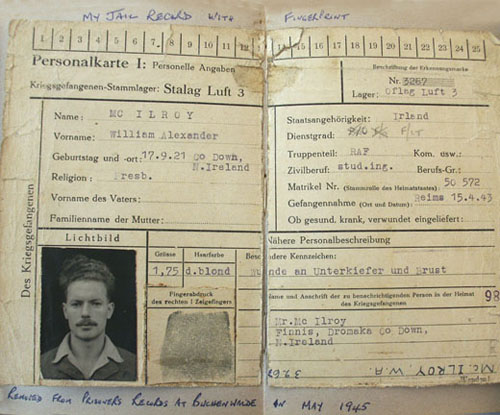 MY JAIL RECORD WITH FINGERPRINT
1. 2. 3. 4. 5. 6. 7. 8. 9. 10 11 12 13 14 15 16 17 18 19 20 21 22 23 24 25
Personalkarte I: Personelle Angaben
Kriegsgefangenen-Stammlager: Stalag Luft 3
Beschriftung der Erkennungsmarke
Nr. 3267
Lager: Oflag Luft 3
Des Kriegsgefangenen
Name: MC ILROY
Vorname: William Alexander
Geburtstag und -ort: 17.9.21 Co Down,
N.Ireland
Religion: Presb.
Vorname des Vaters:
Familienname der Mutter:
Staatsangehörigkeit: Irland
Dienstgrad: F/LT
Truppenteil: RAF Kom. usw.:
Zivilberuf: stud.ing. Berufs-Gr.:
Matrikel Nr. (Stammrolle des Heimatstaates) 50 572
Gefangennahme (Ort und Datum): Reims 15.4.43
Ob gesund, krank, verwundet eingeliefert:
Lichtbild
Grösse Haarfarbe
1,75 d.blond
Fingerabdruck
des rechten Zeigefingers
Nähere Personalbeschreibung
Besondere Kennzeichen:
Wunde an Unterkiefer und Brust
Name und Anschrift der zu benachrichtigenden Person in der Heimat
des Kriegsgefangenen
98
Mr.Mc Ilroy
Finnis, Dromaka Co Down,
N.Ireland
Mc. ILROY, W.A
3267
REMOVED FROM PRISONERS RECORDS AT BUCHENWALDE IN MAY 1945